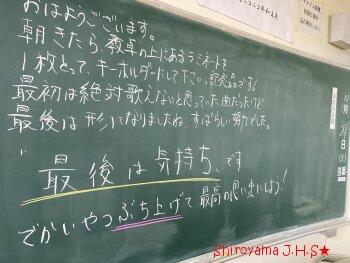 おはようございます。
朝きたら、教卓の上にあるラミネートを
1枚とって キーホルダーにして下さい。記念品です!
最初は絶対歌えないと思っていた曲だったけど
最後は形になりましたね、すばらしい努力でした。
最後は気持ち、です
でかいやつぶち上げて最高の思い出にしよう!
10月
24日
(土)
Shiroyama J.H.S★